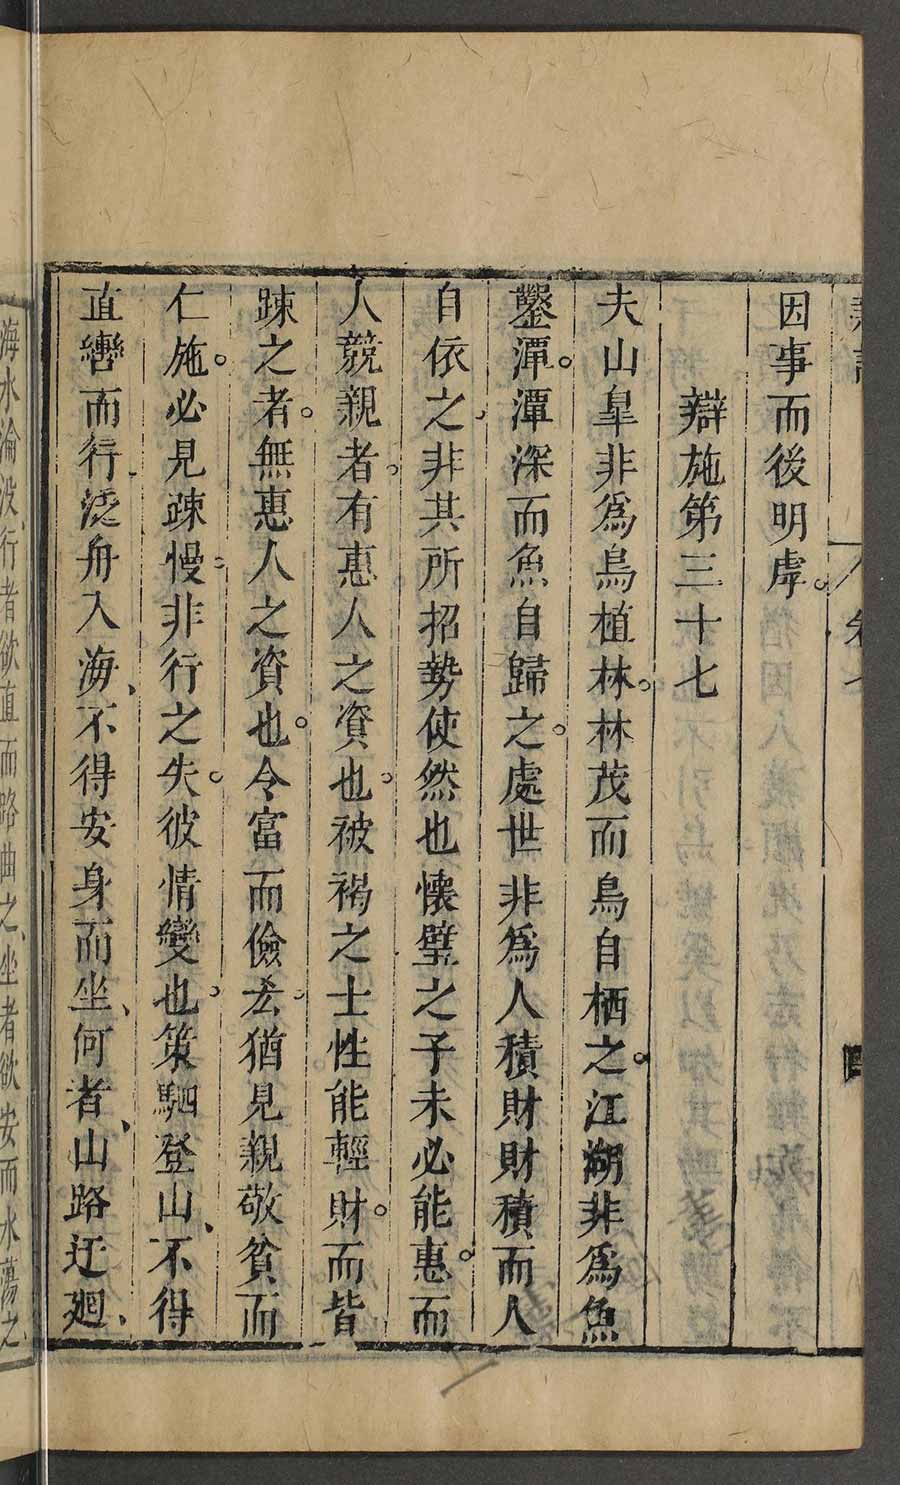 因事而後明虖
辯施第三十七
夫山臯非爲鳥植林林茂而鳥自栖之江湖非爲魚
鑿潭潭深而魚自歸之處世非爲人積財財積而人
自依之非其所招勢使然也懷璧之子未必能惠而
人競親者有惠人之資也被褐之士性能輕財而皆
踈之者無惠人之資也今富而儉𠫤猶見親敬貧而
仁施必見踈慢非行之失彼情變也策駟登山不得
直轡而行泛舟入海不得安身而坐何者山路迂廻
海水淪没行者欲直而路曲之坐者欲安而水蕩之